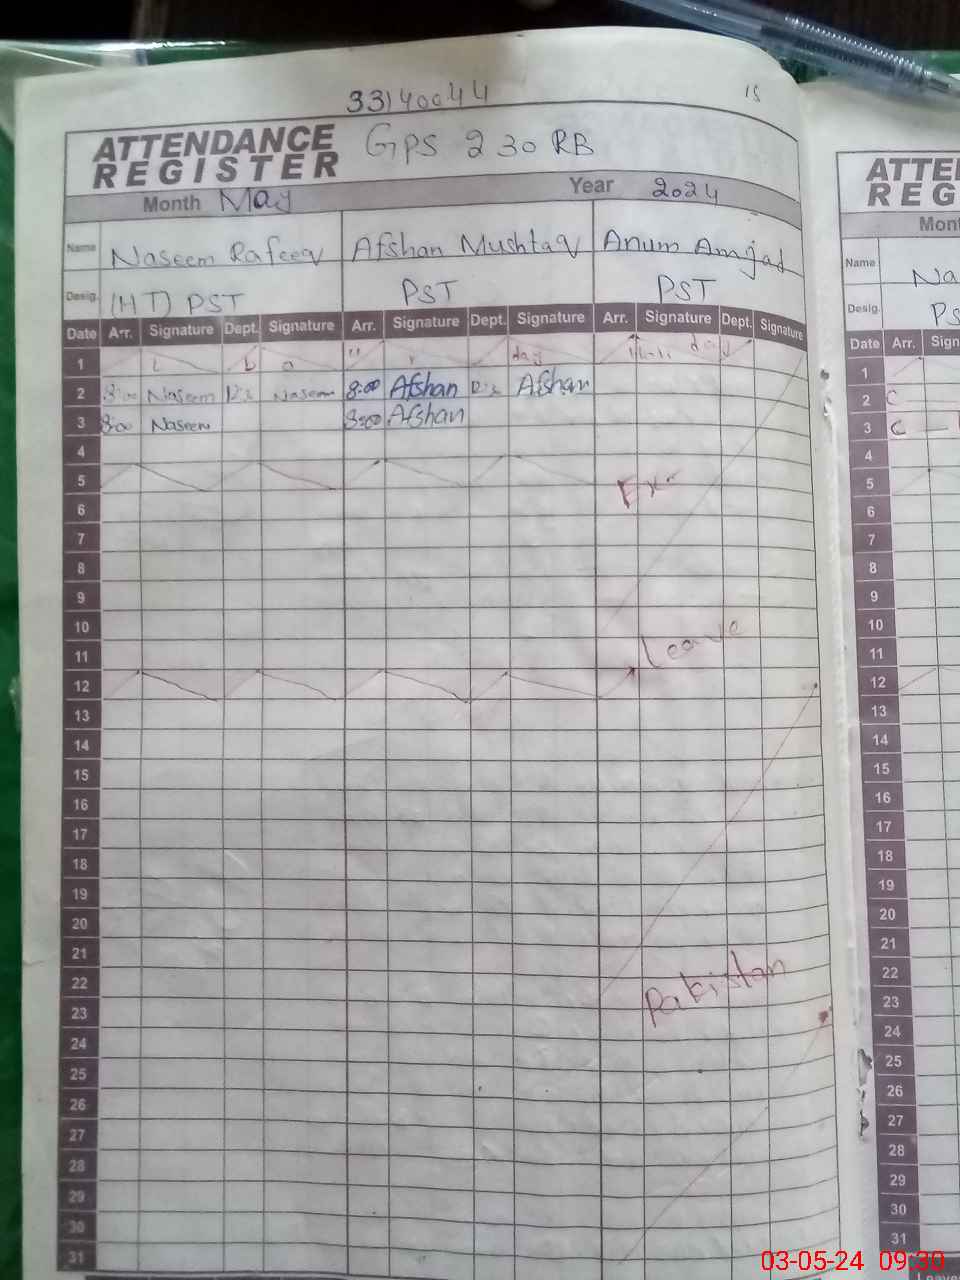 33140044
15
ATTENDANCE REGISTER GPS 230 RB
Month May Year 2024
Name Naseem Rafeeq Afshan Mushtaq Anum Amjad
Desig. (HT) PST PST PST
Date Arr. Signature Dept. Signature Arr. Signature Dept. Signature Arr. Signature Dept. Signature
1 day day
2 8:00 Naseem Naseem 8:00 Afshan Afshan
3 8:00 Naseem 8:00 Afshan
4
5
6
7
8
9
10
11 Leave
12
13
14
15
16
17
18
19
20
21
22 Pakistan
23
24
25
26
27
28
29
30
31
ATTE
REG
Mont
Name Na
Desig. PS
Date Arr. Sign
1
2 C
3 C
4
5
6
7
8
9
10
11
12
13
14
15
16
17
18
19
20
21
22
23
24
25
26
27
28
29
30
31
Leave
03-05-24 09:30